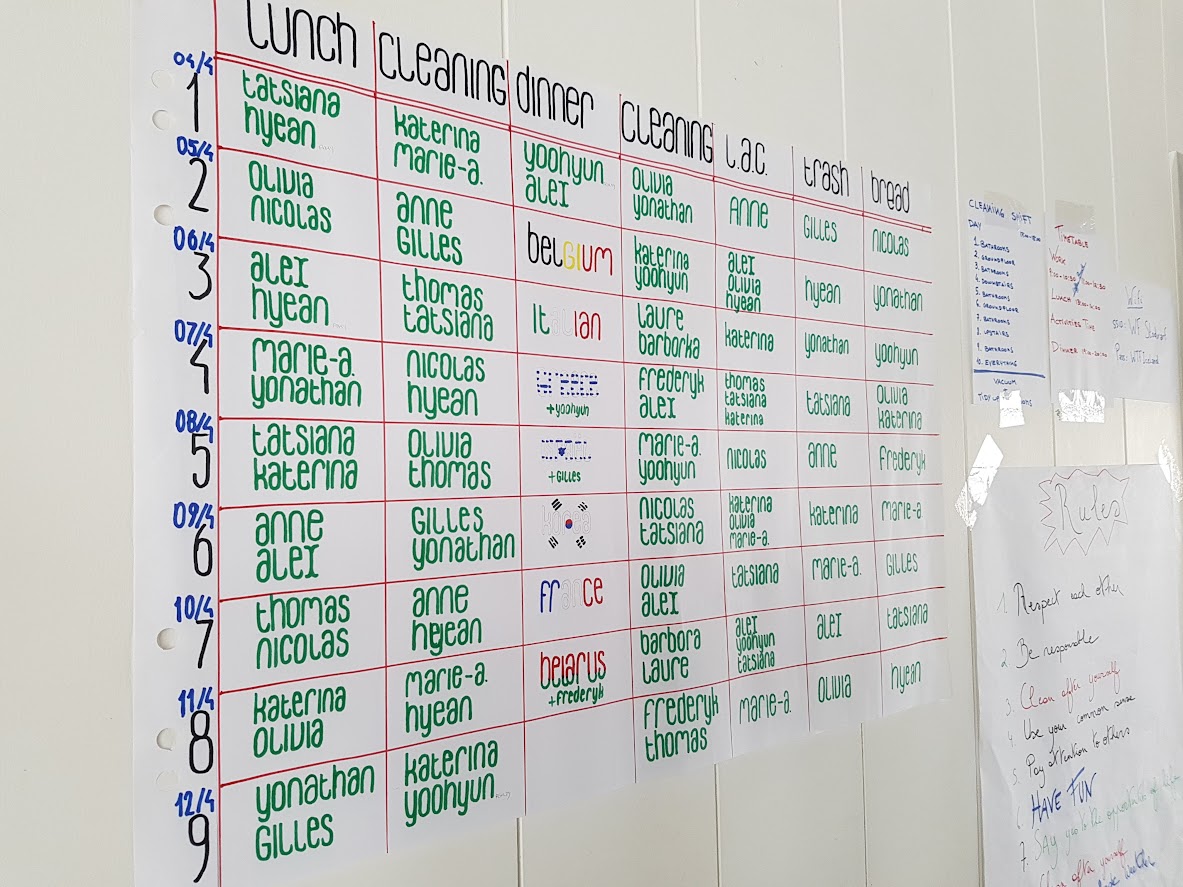 lunch cleaning dinner cleaning L.a.c. trash bread
04/4
1 tatsiana katerina yoohyun olivia anne Gilles nicolas
hyean marie-a. alex yonathan
05/4
2 olivia anne belgium katerina alex hyean yonathan
nicolas Gilles yoohyun olivia
hyean
06/4
3 alex thomas Italian laure katerina yonathan yoohyun
hyean tatsiana barborka
07/4
4 marie-a. nicolas greece frederyk thomas tatsiana olivia
yonathan hyean +yoohyun alex tatsiana katerina
katerina
08/4
5 tatsiana olivia marie-a. nicolas anne frederyk
katerina thomas +Gilles yoohyun
09/4
6 anne Gilles nicolas katerina katerina marie-a
alex yonathan tatsiana olivia
marie-a.
10/4
7 thomas anne france olivia tatsiana marie-a. Gilles
nicolas hyean alex
11/4
8 katerina marie-a. belarus barbora alex alex tatsiana
olivia hyean +frederyk laure yoohyun
tatsiana
12/4
9 yonathan katerina frederyk marie-a. olivia hyean
Gilles yoohyun thomas
CLEANING SHIFT
DAY
1. BATHROOMS
2. GROUNDFLOOR
3. BATHROOMS
4. DOWNSTAIRS
5. BATHROOMS
6. GROUNDFLOOR
7. BATHROOMS
8. UPSTAIRS
9. BATHROOMS
10. EVERYTHING
VACUUM
TIMETABLE
Work
Lunch
Activities Time
Dinner
Wifi
Pass: WTFIceland
Rules
1. Respect each other
2 Be responsible
3. Clean after yourself
4. Use your common sense
5. Pay attention to others
6 HAVE FUN
7. Say yes to the opportunities of
after yourself